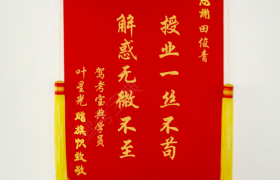 田俊青
授业一丝不苟
解惑无微不至
驾考宝典学员
叶星光
致敬